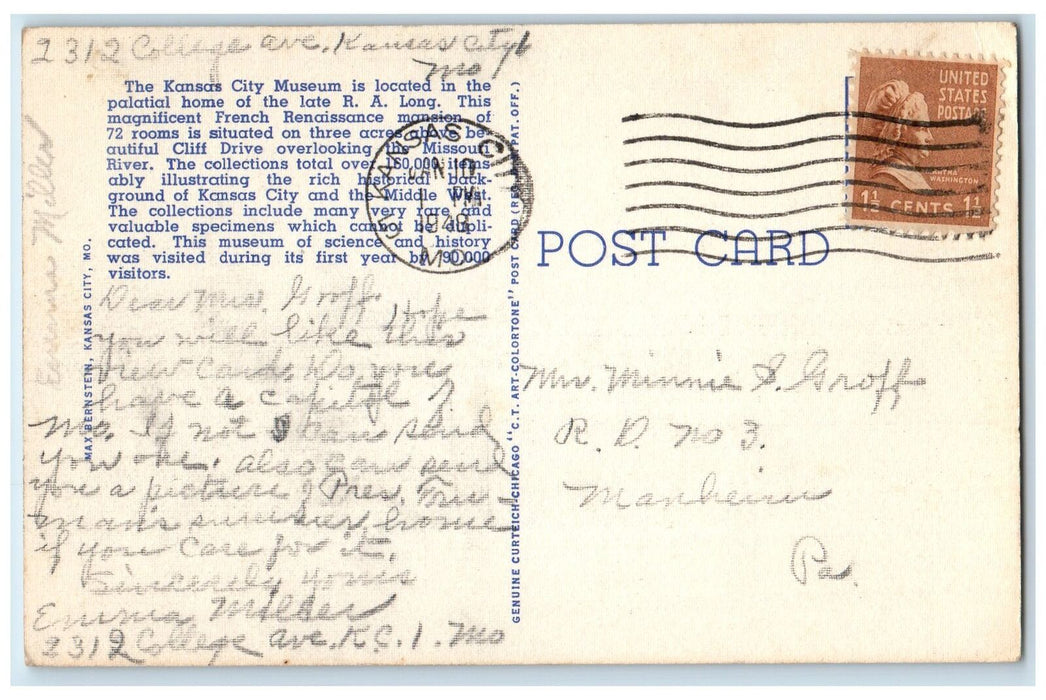 2312 College ave. Kansas City 1
Mo
The Kansas City Museum is located in the
palatial home of the late R. A. Long. This
magnificent French Renaissance mansion of
72 rooms is situated on three acres above be-
autiful Cliff Drive overlooking the Missouri
River. The collections total over 160,000 items
ably illustrating the rich historical back-
ground of Kansas City and the Middle West.
The collections include many very rare and
valuable specimens which cannot be dupli-
cated. This museum of science and history
was visited during its first year by 90,000
visitors.
Dear Mrs. Groff. Hope
you will like this
view card. Do you
have a capitol of
Mo. If not I can send
you one. also can send
you a picture of Pres. Tru-
man's summer home
if you care for it.
Sincerely yours
Emma Miller
2312 College ave. K.C. 1. Mo
Emma Miller
MAX BERNSTEIN, KANSAS CITY, MO.
GENUINE CURTEICH-CHICAGO "C.T. ART-COLORTONE" POST CARD (REG. U.S. PAT. OFF.)
KANSAS CITY
JAN
PM
MO.
POST CARD
UNITED
STATES
POSTAGE
MARTHA
WASHINGTON
1½ CENTS 1½
Mrs. Minnie S. Groff
R. D. No 3.
Manheim
Pa.